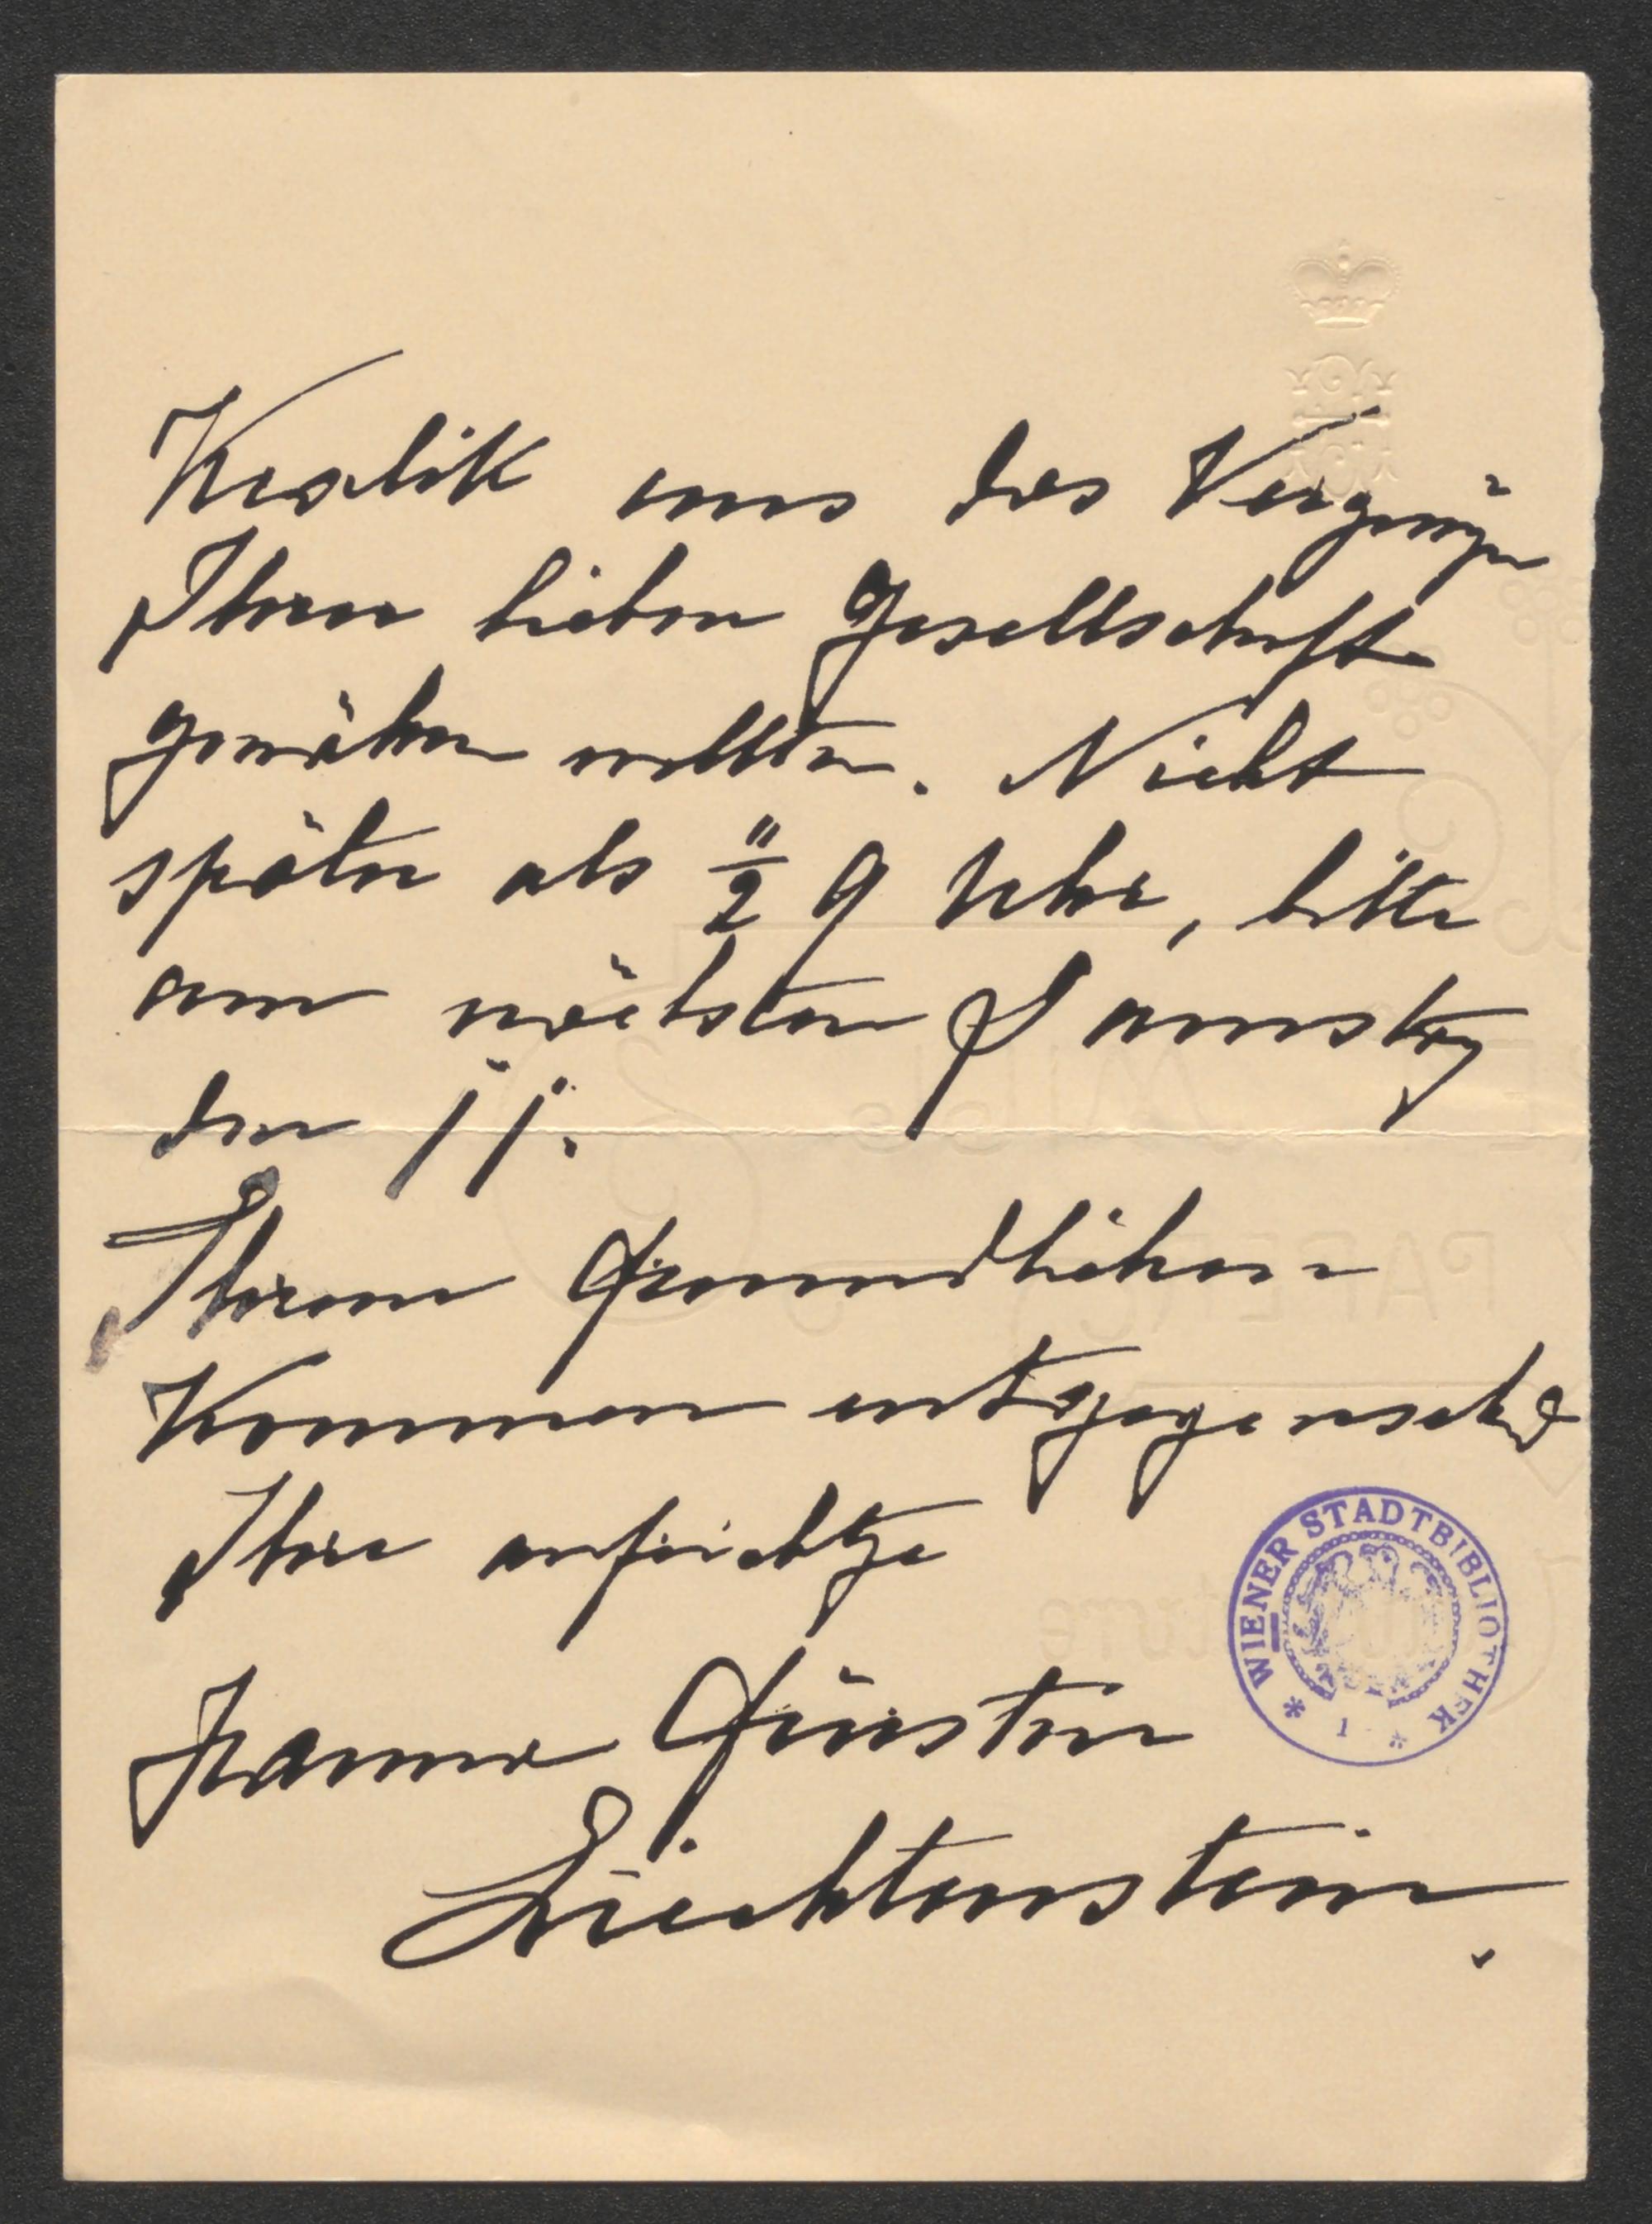 Kralik uns das Vergnügen
Ihrer lieben Gesellschaft
gewähren wollten. Nicht
später als ½ 9 Uhr, bitte
am nächsten Samstag
den 11.
Ihrem freundlichen
Kommen entgegensehend
Ihre aufrichtige
Hanna Fürstin
Liechtenstein.
WIENER STADTBIBLIOTHEK